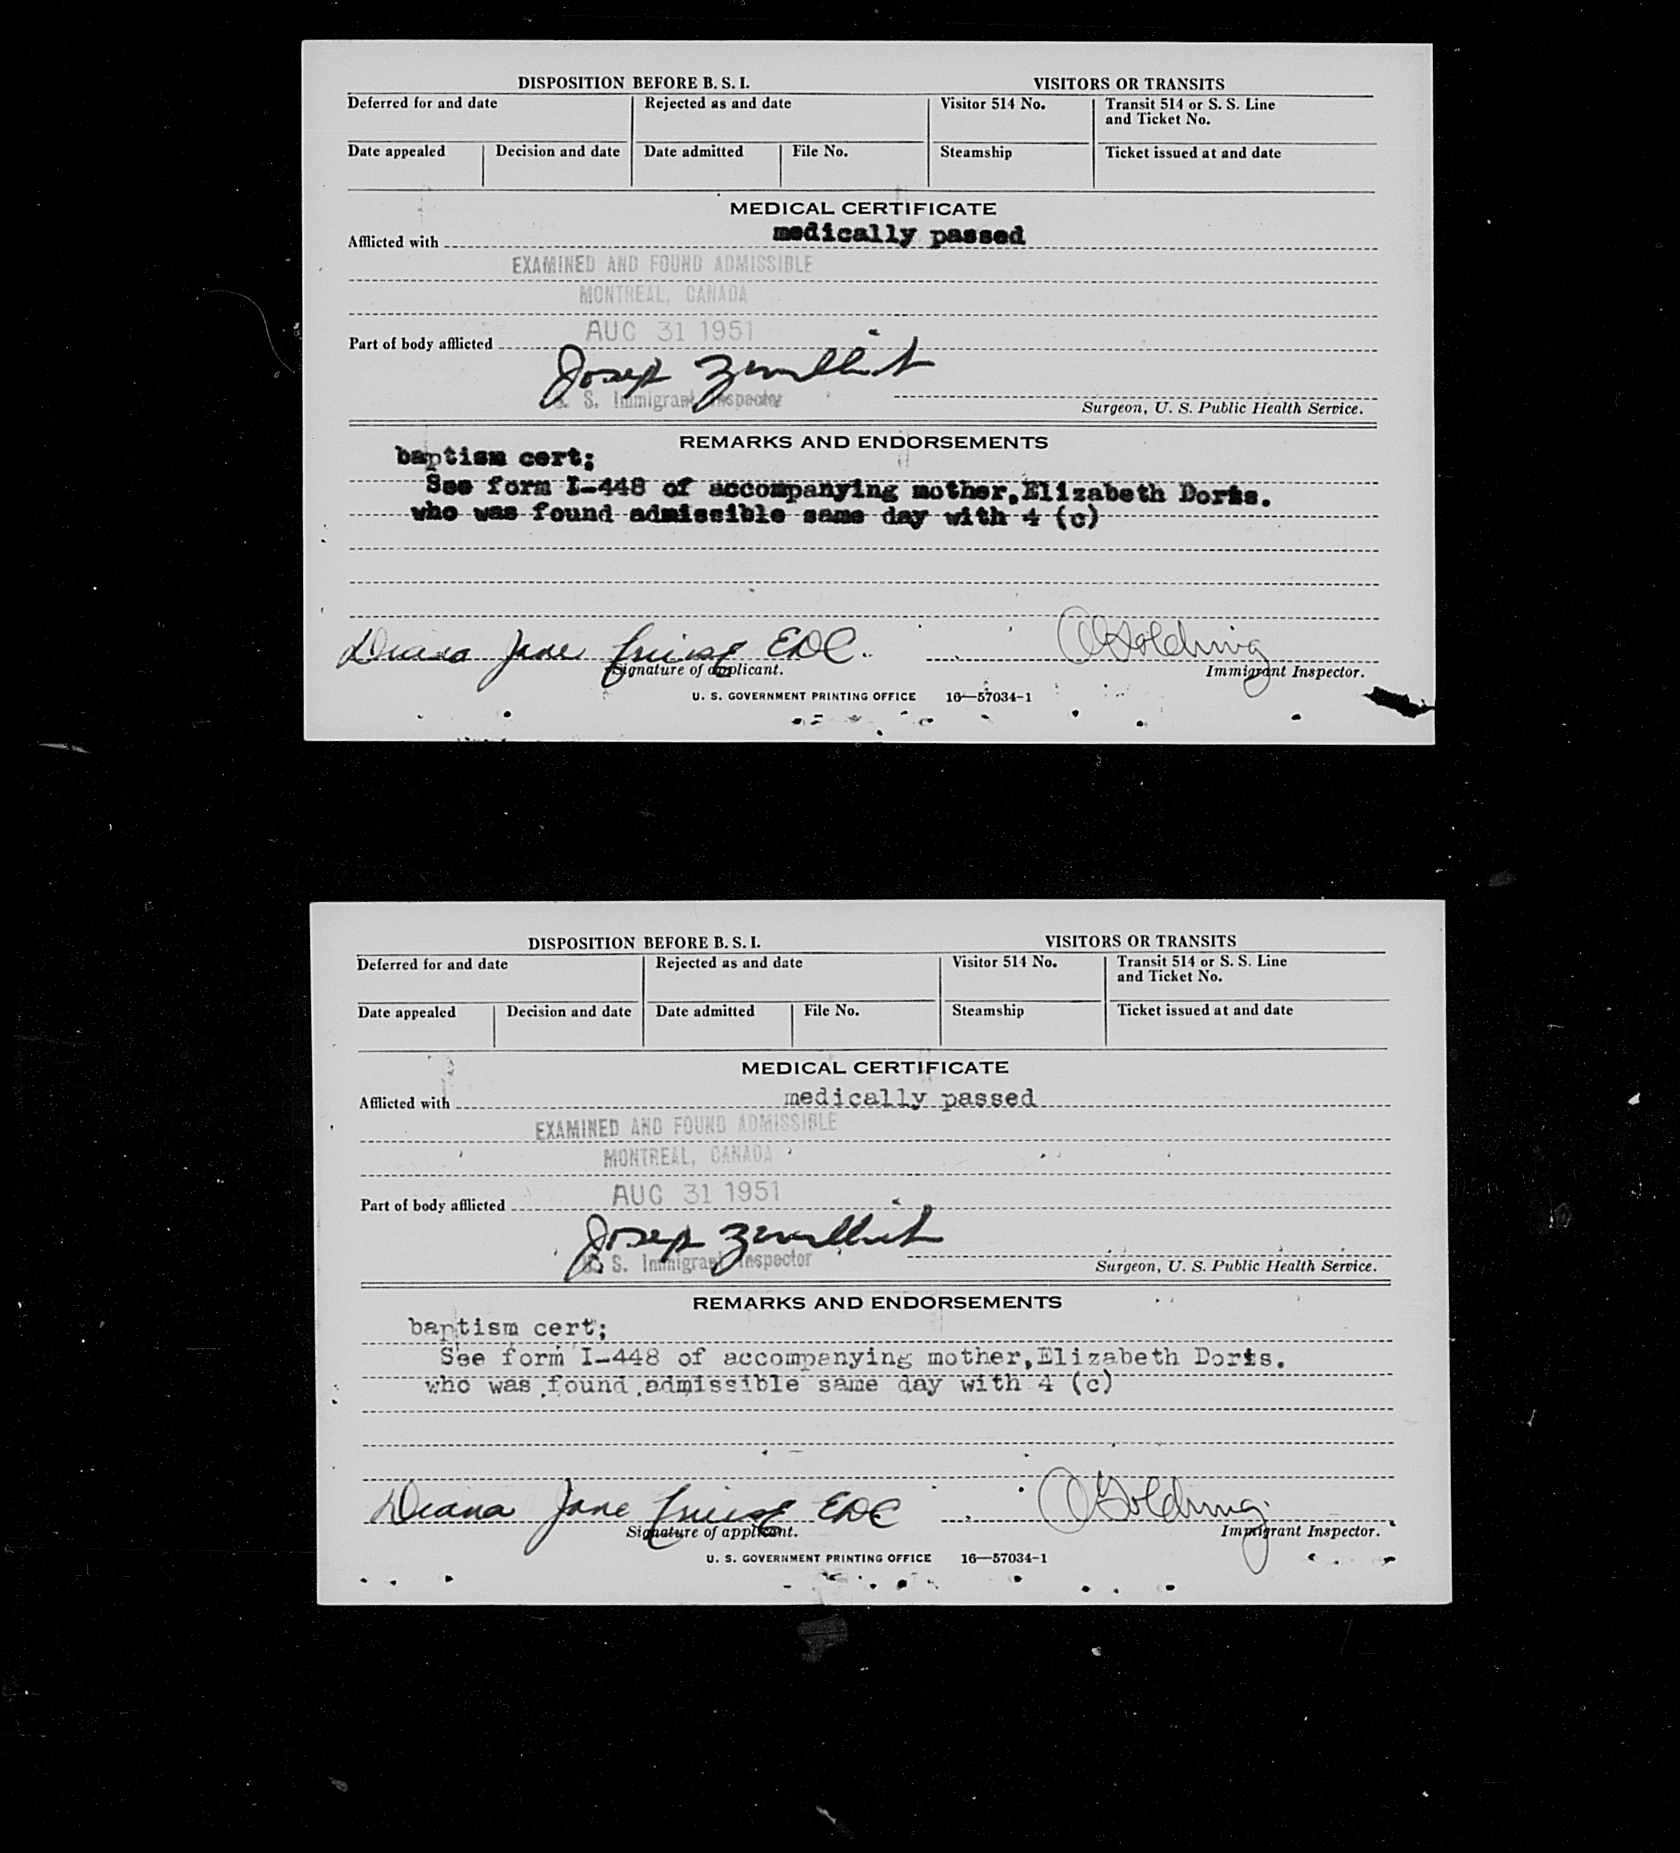 DISPOSITION BEFORE B. S. I. VISITORS OR TRANSITS
Deferred for and date Rejected as and date Visitor 514 No. Transit 514 or S. S. Line
and Ticket No.
Date appealed Decision and date Date admitted File No. Steamship Ticket issued at and date
MEDICAL CERTIFICATE
Afflicted with medically passed
EXAMINED AND FOUND ADMISSIBLE
MONTREAL, CANADA
AUG 31 1951
Part of body afflicted
Josep
S. Immigrant Inspector
Surgeon, U. S. Public Health Service.
REMARKS AND ENDORSEMENTS
baptism cert;
See form I-448 of accompanying mother, Elizabeth Doris.
who was found admissible same day with 4 (c)
Diana Jane EDC. Golding
Signature of applicant. Immigrant Inspector.
U. S. GOVERNMENT PRINTING OFFICE 16—57034-1
DISPOSITION BEFORE B. S. I. VISITORS OR TRANSITS
Deferred for and date Rejected as and date Visitor 514 No. Transit 514 or S. S. Line
and Ticket No.
Date appealed Decision and date Date admitted File No. Steamship Ticket issued at and date
MEDICAL CERTIFICATE
Afflicted with medically passed
EXAMINED AND FOUND ADMISSIBLE
MONTREAL, CANADA
AUG 31 1951
Part of body afflicted
Josep
U. S. Immigrant Inspector
Surgeon, U. S. Public Health Service.
REMARKS AND ENDORSEMENTS
baptism cert;
See form I-448 of accompanying mother, Elizabeth Doris.
who was found admissible same day with 4 (c)
Diana Jane EDC Golding
Signature of applicant. Immigrant Inspector.
U. S. GOVERNMENT PRINTING OFFICE 16—57034-1